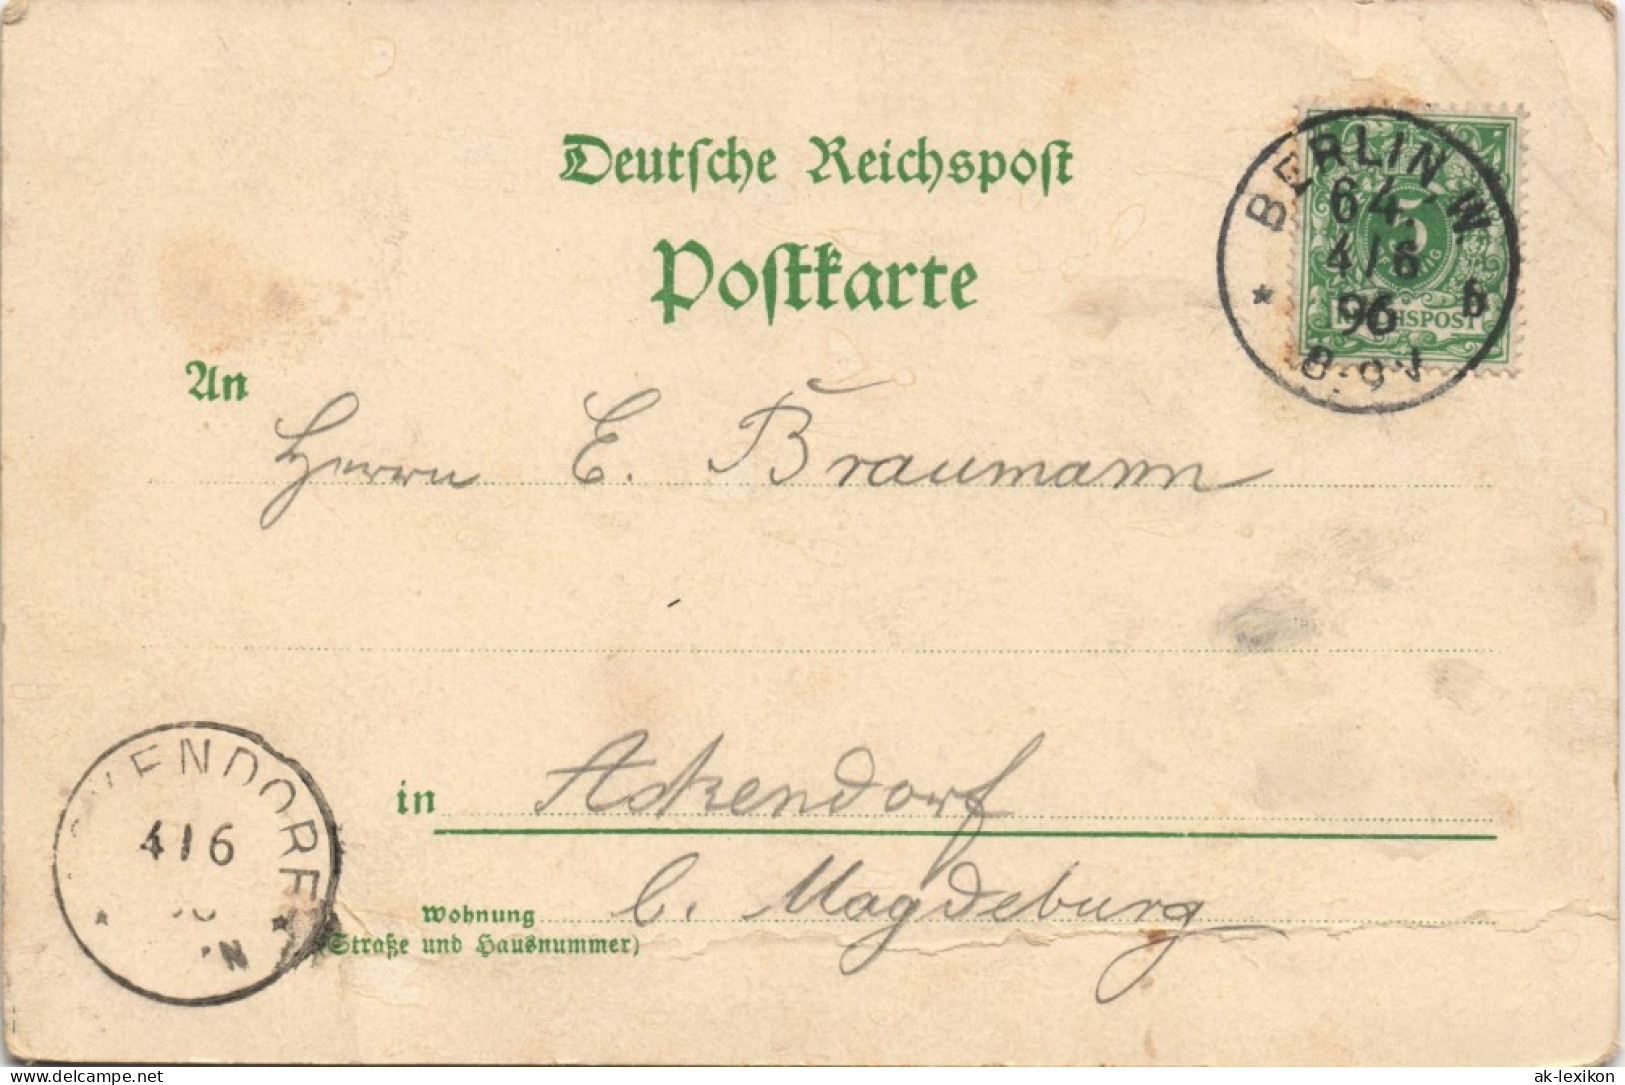 Deutsche Reichspost
Postkarte
BERLIN, W.
64.
4/6
96
b
8-9V
5
REICHSPOST
An
Herrn E. Braumann
in Ackendorf
b. Magdeburg
Wohnung
(Straße und Hausnummer)
KENDORF
4/6
N
delcampe.net
ak-lexikon